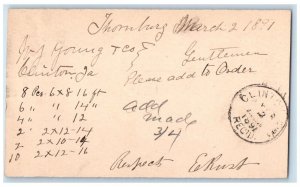 Thornburg March 2 1891
W J Young & Co
Gentlemen
Clinton Ia
Please add to Order
8 Pcs 6 x 8 16 ft
6 " " 14 "
4 " " 12
2 " 2 x 12 - 14
2 " 2 x 10 - 14
10 2 x 12 - 16
add
made
3/4
CLINTON
1891
REC'D
Respect E Rust